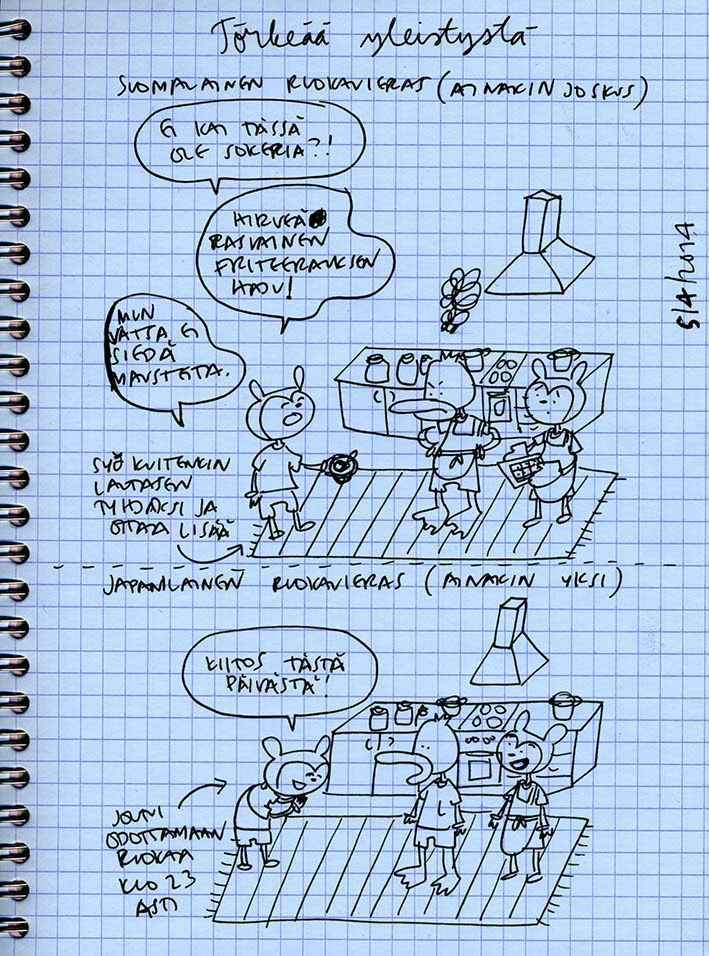 Törkeää yleistystä
SUOMALAINEN RUOKAVIERAS (AINAKIN JOSKUS)
EI KAI TÄSSÄ
OLE SOKERIA?!
HIRVEÄ
RASVAINEN
FRITEERAUKSEN
HAJU!
MUN
VATSA EI
SIEDÄ
MAUSTEITA.
SYÖ KUITENKIN
LAUTASEN
TYHJÄKSI JA
OTTAA LISÄÄ
5/4/2014
JAPANILAINEN RUOKAVIERAS (AINAKIN YKSI)
KIITOS TÄSTÄ
PÄIVÄSTÄ!
JOUTUI
ODOTTAMAAN
RUOKAA
KLO 23
ASTI